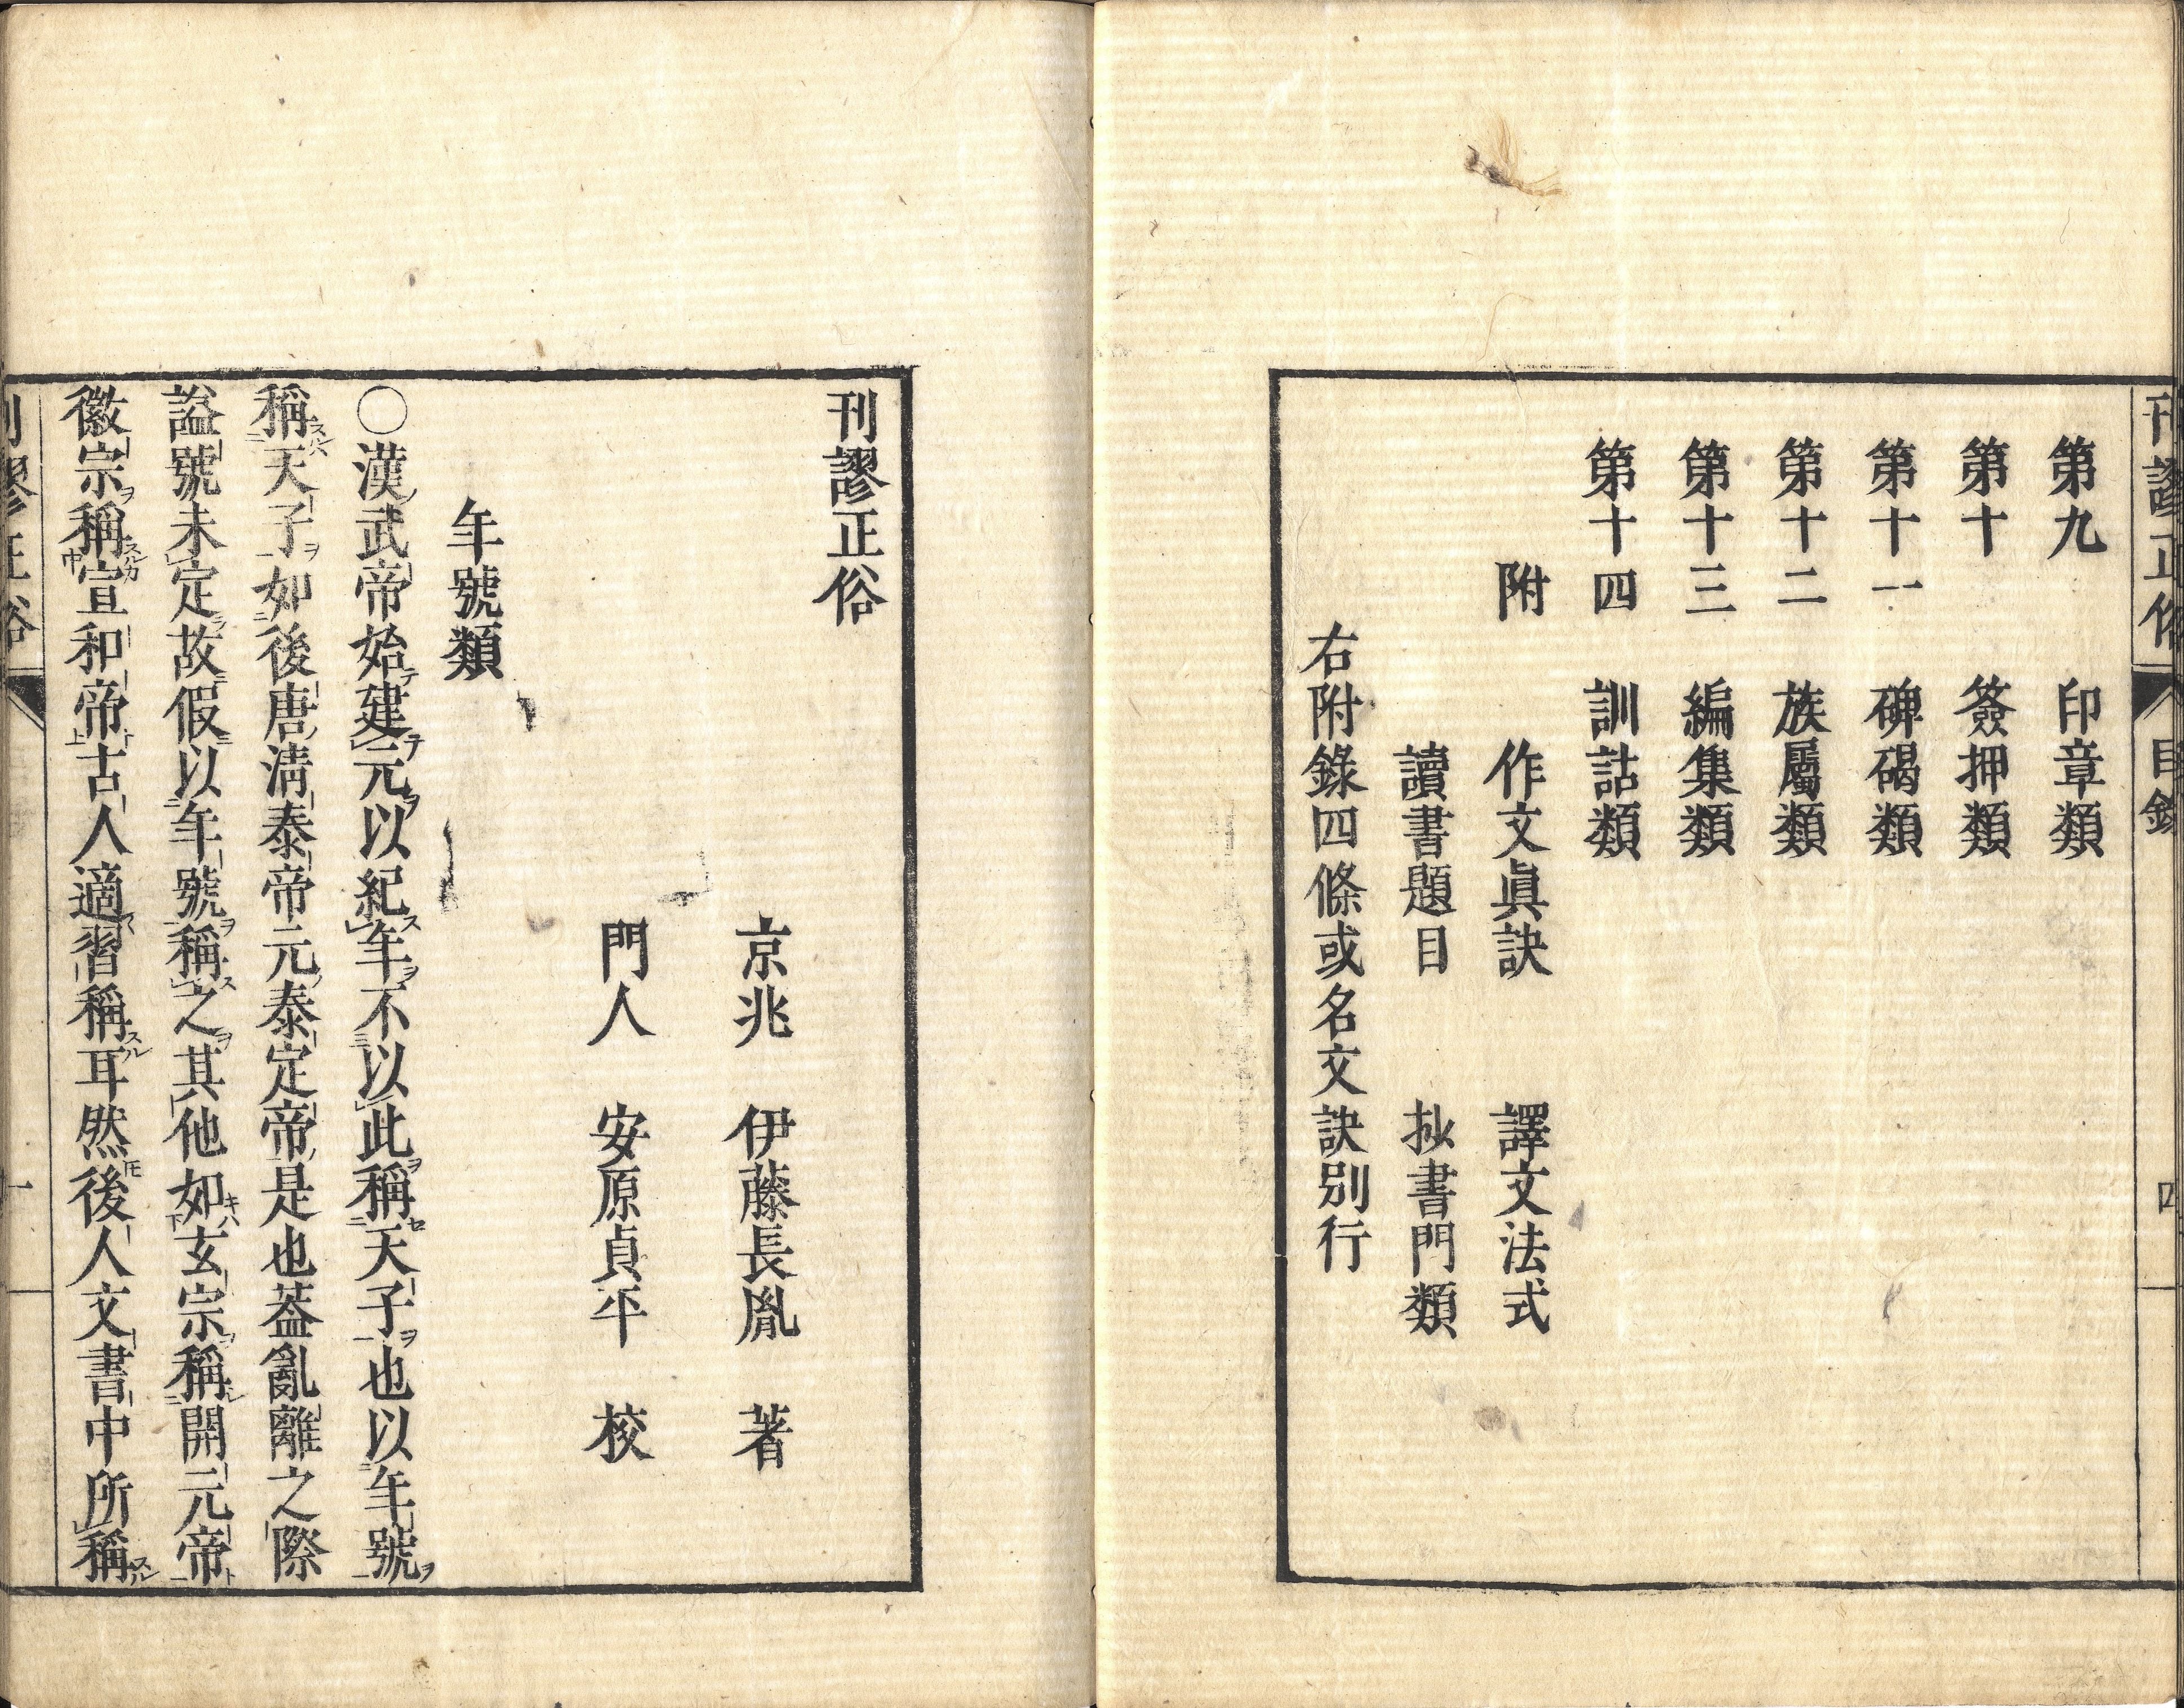 刊謬正俗
目錄
四
第九 印章類
第十 簽押類
第十一 碑碣類
第十二 族屬類
第十三 編集類
第十四 訓詁類
附 作文眞訣 譯文法式
讀書題目 抄書門類
右附錄四條或名文訣別行
刊謬正俗
京兆 伊藤長胤 著
門人 安原貞平 校
年號類
○漢武帝始建元以紀年不以此稱天子也以年號
稱天子如後唐淸泰帝元泰定帝是也葢亂離之際
謚號未定故假以年號稱之其他如玄宗稱開元帝
徽宗稱宣和帝古人適習稱耳然後人文書中所稱
刊謬正俗
一